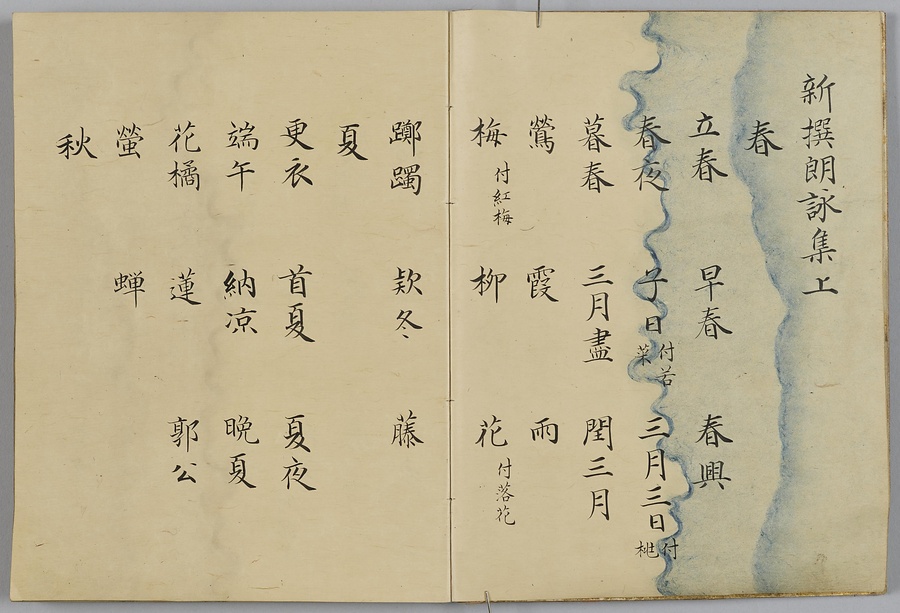 新撰朗詠集上
春
立春 早春 春興
春夜 子日付若菜 三月三日付桃
暮春 三月盡 閏三月
鶯 霞 雨
梅付紅梅 柳 花付落花
躑躅 欵冬 藤
夏
更衣 首夏 夏夜
端午 納凉 晩夏
花橘 蓮 郭公
螢 蝉
秋